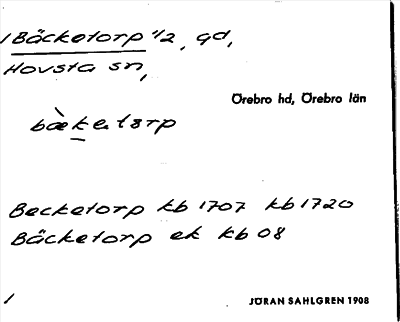 1 Bäcketorp 1/2, gd,
Hovsta sn,
Örebro hd, Örebro län
bæ̀ketɔrp
Becketorp kb 1707 kb 1720
Bäcketorp ek kb 08
1
JÖRAN SAHLGREN 1908